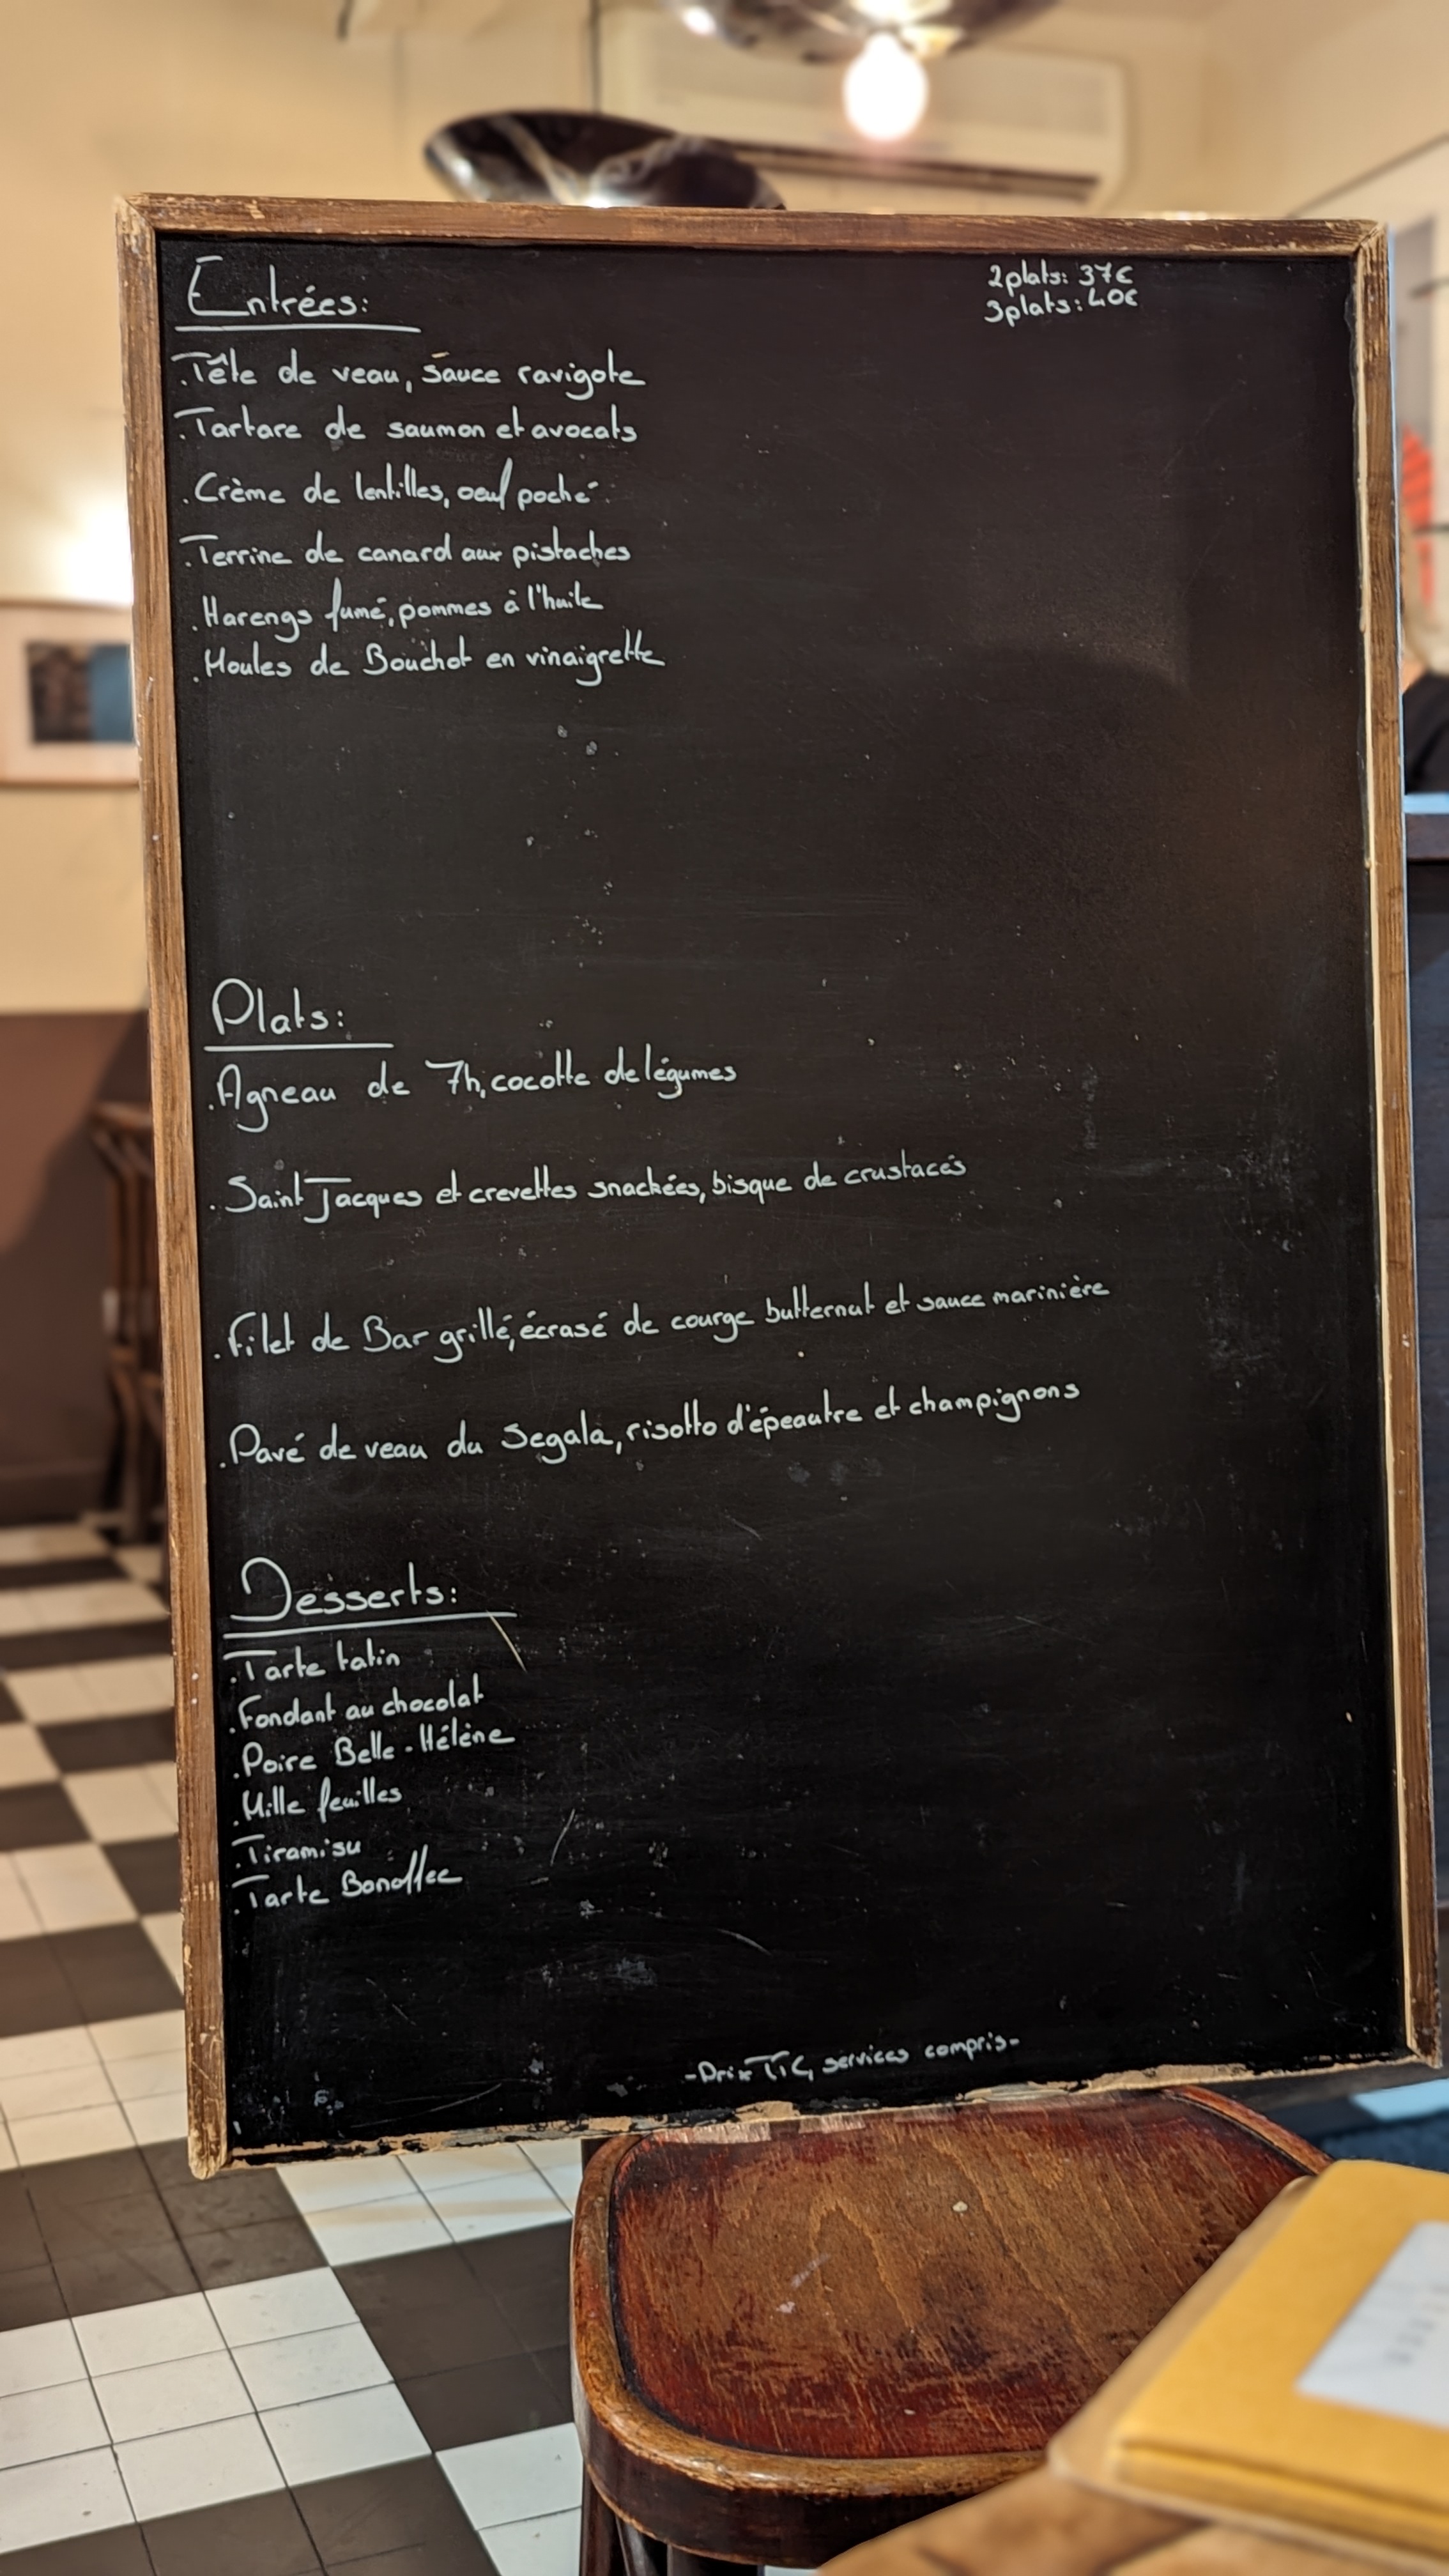 Entrées:
2plats: 37€
3plats: 40€
.Tête de veau, sauce ravigote
.Tartare de saumon et avocats
.Crème de lentilles, oeuf poché
.Terrine de canard aux pistaches
.Harengs fumé, pommes à l'huile
.Moules de Bouchot en vinaigrette
Plats:
.Agneau de 7h, cocotte de légumes
.Saint Jacques et crevettes snackées, bisque de crustacés
.Filet de Bar grillé, écrasé de courge butternut et sauce marinière
.Pavé de veau du Segala, risotto d'épeautre et champignons
Desserts:
.Tarte tatin
.Fondant au chocolat
.Poire Belle-Hélène
.Mille feuilles
.Tiramisu
.Tarte Banoffee
-Prix TTC, services compris-